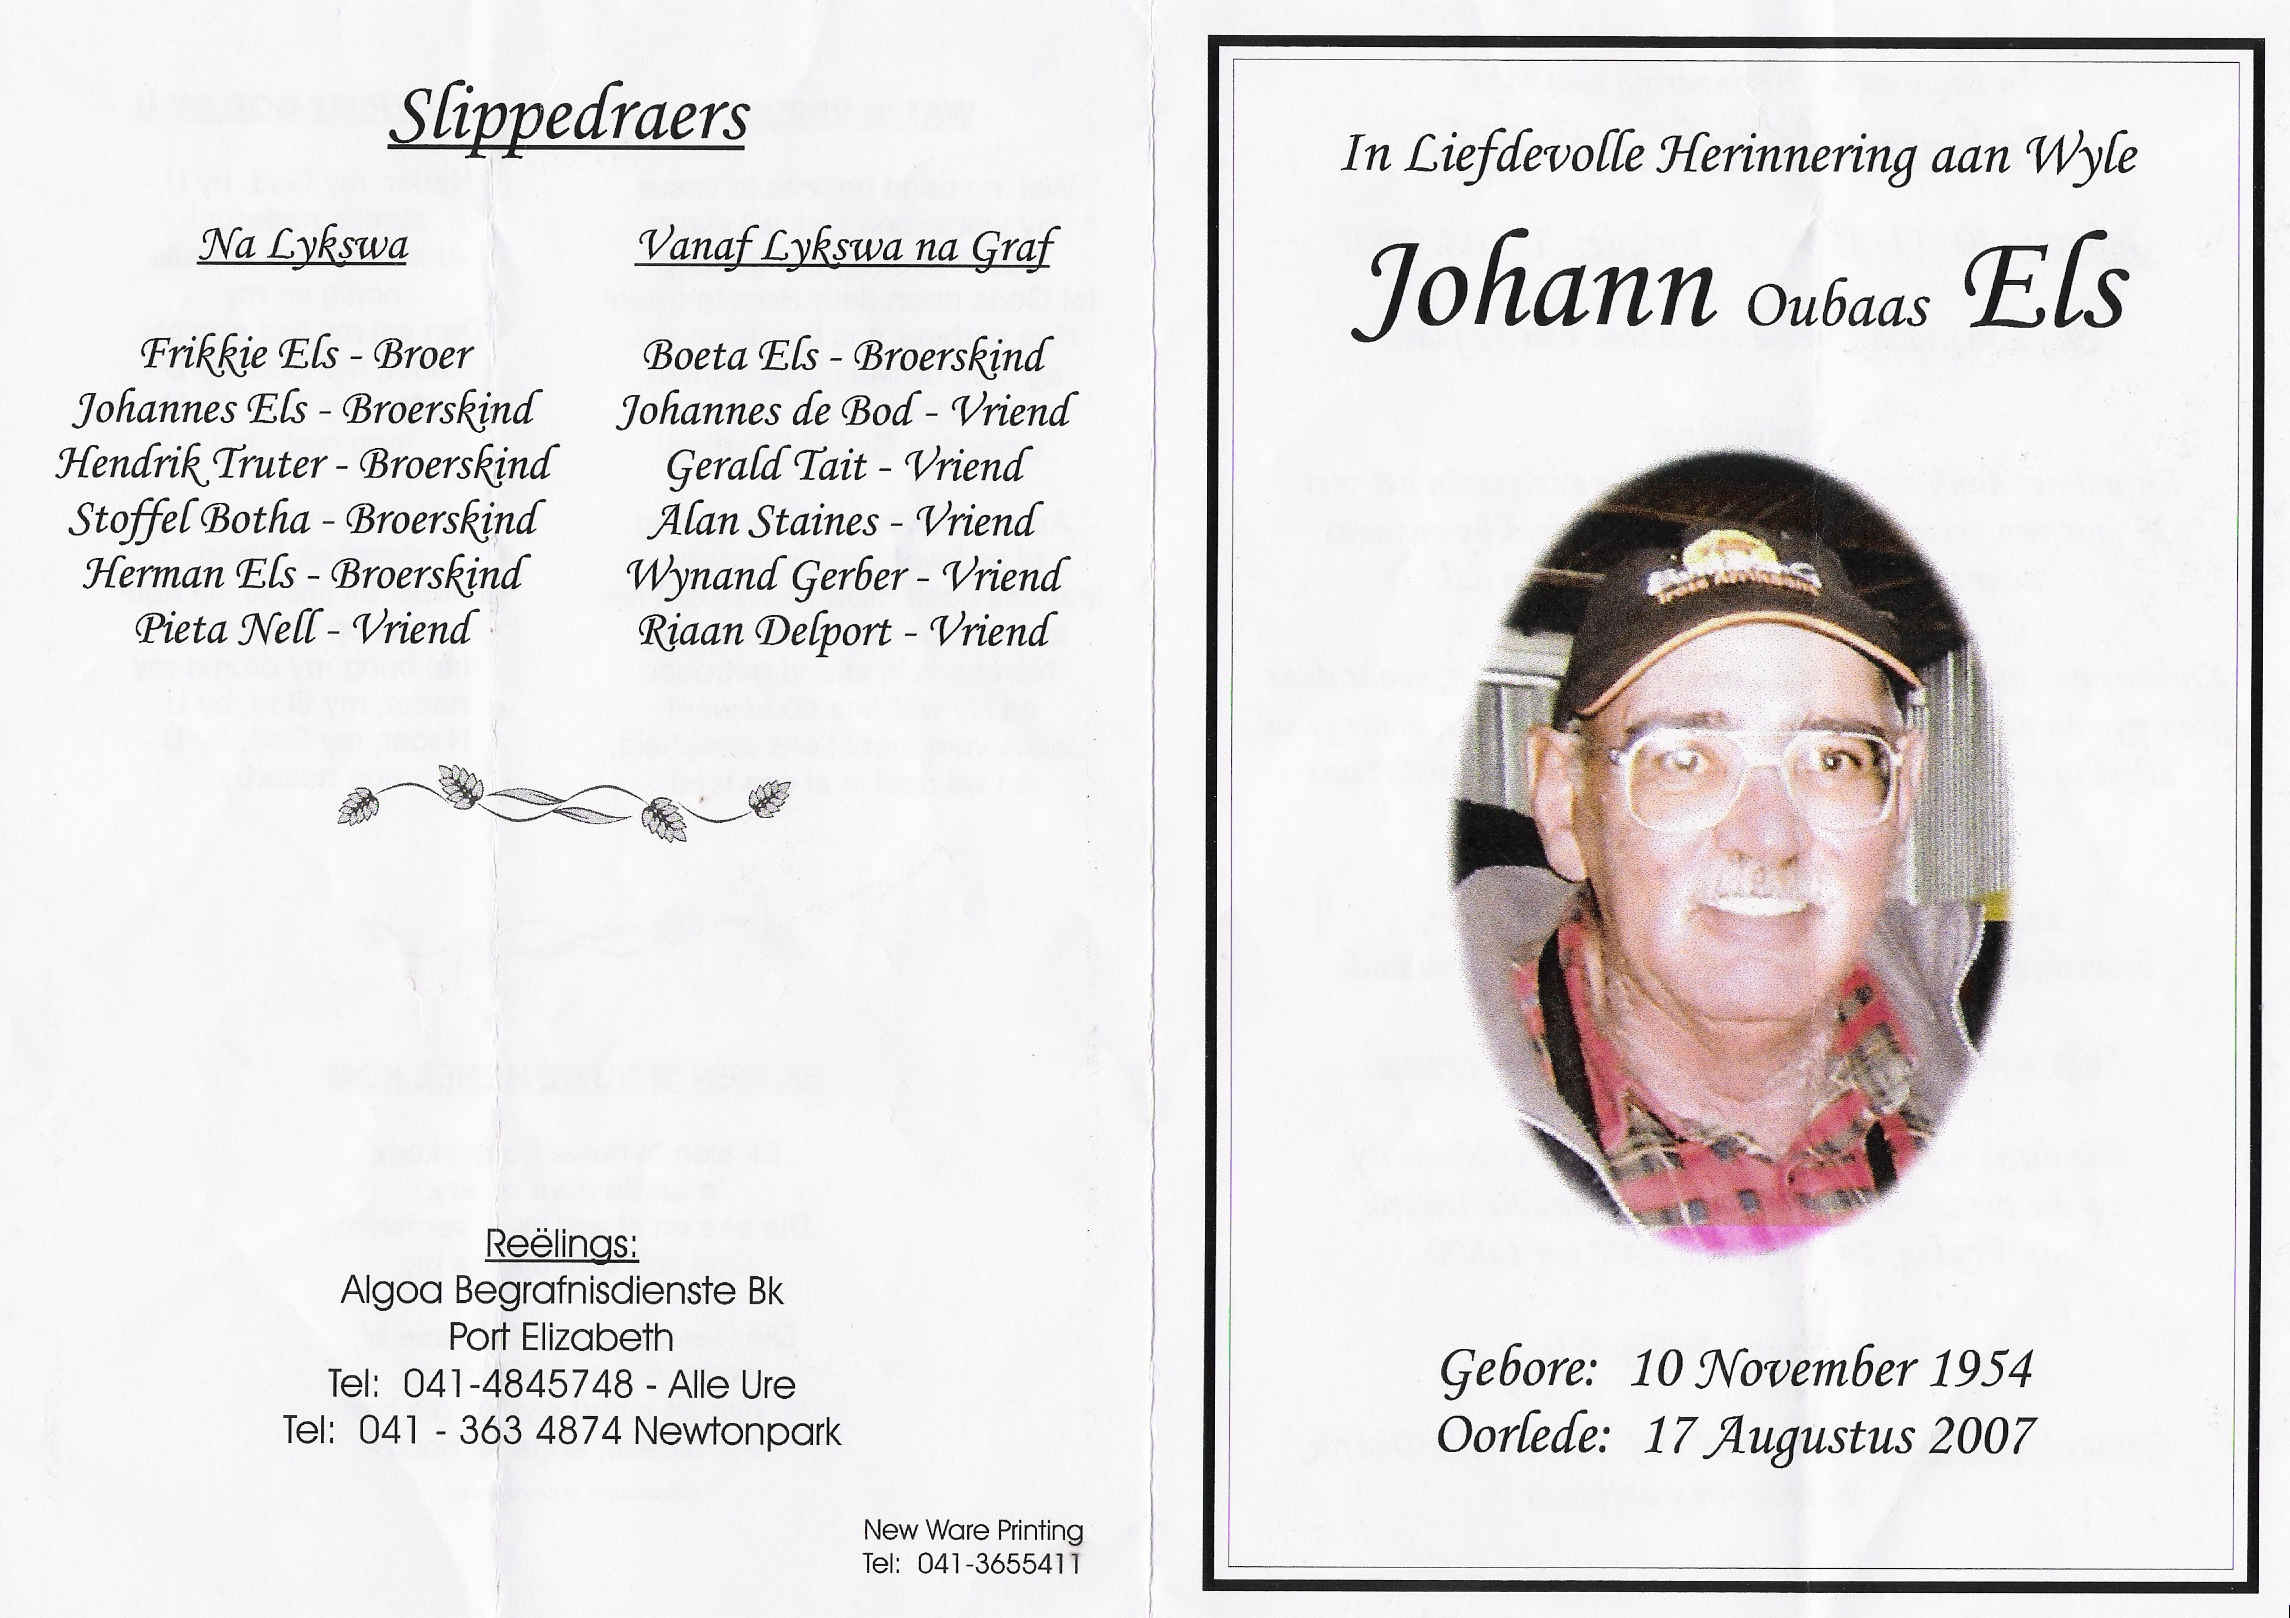 Slippedraers
Na Lykswa
Frikkie Els - Broer
Johannes Els - Broerskind
Hendrik Truter - Broerskind
Stoffel Botha - Broerskind
Herman Els - Broerskind
Pieta Nell - Vriend
Vanaf Lykswa na Graf
Boeta Els - Broerskind
Johannes de Bod - Vriend
Gerald Tait - Vriend
Alan Staines - Vriend
Wynand Gerber - Vriend
Riaan Delport - Vriend
Reëlings:
Algoa Begrafnisdienste Bk
Port Elizabeth
Tel: 041-4845748 - Alle Ure
Tel: 041 - 363 4874 Newtonpark
New Ware Printing
Tel: 041-3655411
In Liefdevolle Herinnering aan Wyle
Johann Oubaas Els
Gebore: 10 November 1954
Oorlede: 17 Augustus 2007